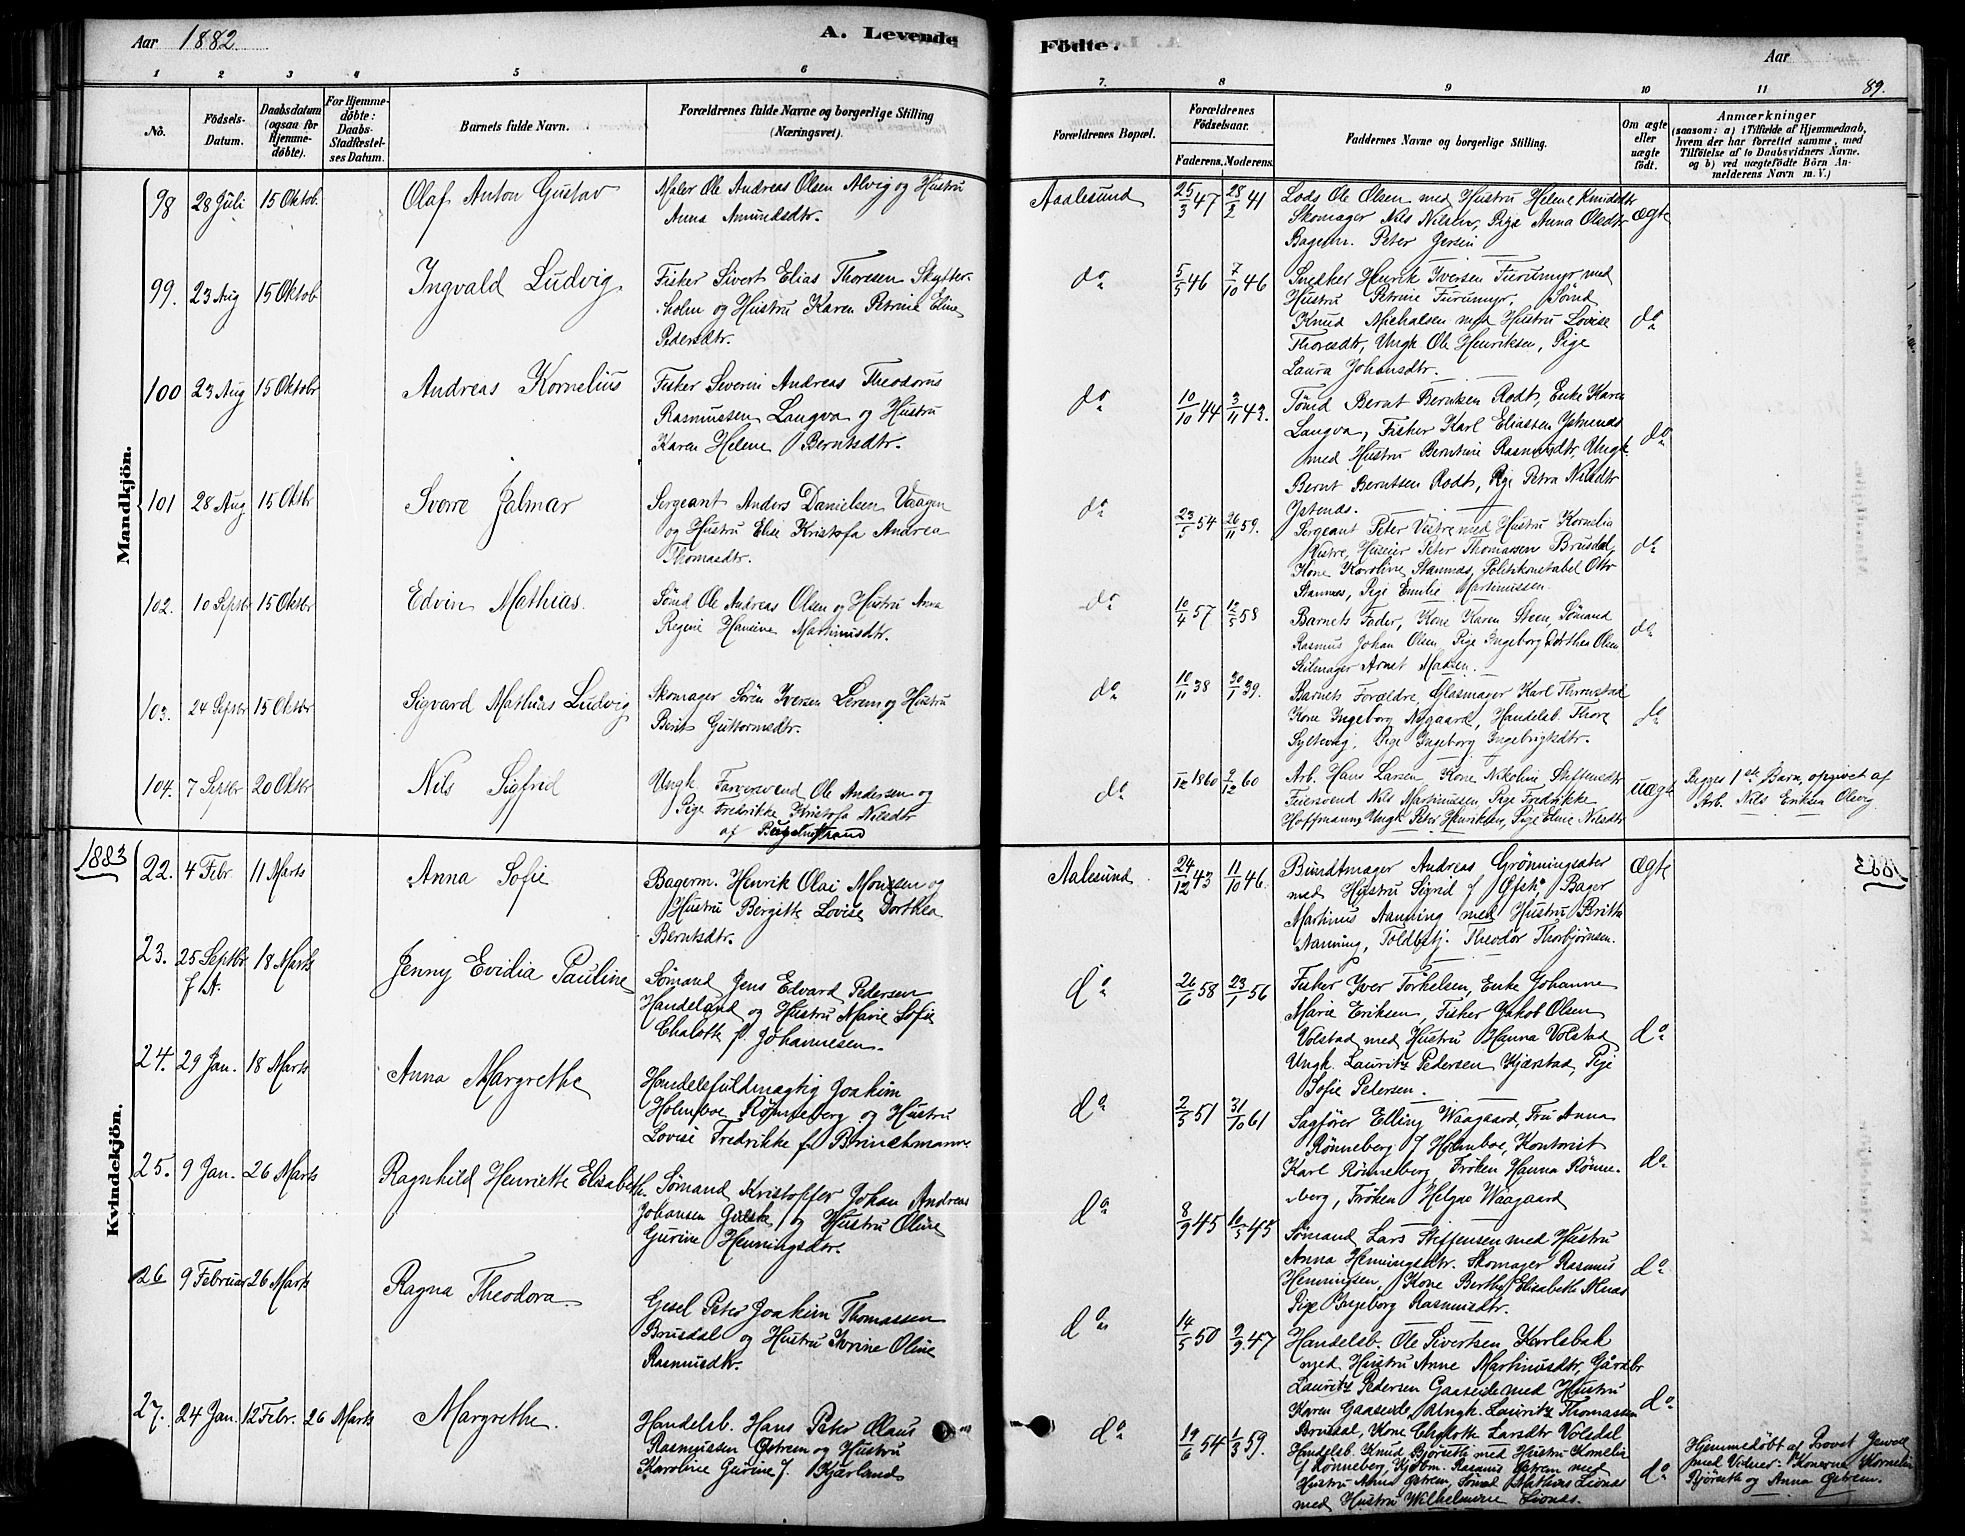 Aar 1882.
A. Levende
Födte.
Aar
89.
1 2 3 4 5 6 7. 8 9 10 11
No.
Födsels-Datum.
Daabsdatum (ogsaa for Hjemme-döbte).
For Hjemme-döbte: Daabs-Stadfæstel-ses Datum.
Barnets fulde Navn.
Forældrenes fulde Navne og borgerlige Stilling (Næringsvei).
Forældrenes Bopæl.
Forældrenes Födselsaar.
Faderens. Moderens.
Faddernes Navne og borgerlige Stilling.
Om ægte eller uægte födt.
Anmærkninger
(saasom: a) i Tilfælde af Hjemmedaab,
hvem der har forrettet samme, med
Tilföielse af to Daabsvidners Navne.
og b) ved uægtefödte Börn An-
melderens Navn m. V.)
Mandkjön.
98 28 Juli 15 Oktob. Olaf Anton Gustav
Maler Ole Andreas Olsen Alvig og Hustru
Anna Amundsdtr.
Aalesund 25/3 47 28/2 41
Lods Ole Olsen med Hustru Helene Knudsdtr
Skomager Nils Nilsen, Pige Anna Olsdtr
Bagerm. Peter Jersin
ægte
99. 23 Aug 15 Oktob Ingvald Ludvig
Fisker Sivert Elias Thoresen Skytter-
holm og Hustru Karen Petrine Eline
Pedersdtr.
do 5/5 46 7/10 46
Snedker Henrik Iversen Furumyr med
Hustru Petrine Furumyr, Sömd
Knud Michalsen med Hustru Lovise
Thoresdtr, Ungk Ole Henriksen, Pige
Laura Johansdtr.
do
100 23 Aug 15 Oktobr Andreas Kornelius
Fisker Severin Andreas Theodorus
Rasmussen Langva og Hustru
Karen Helene Berntsdtr.
do 10/10 44 3/11 43.
Tömd Bernt Berntsen Rodt, Enke Karen
Langva, Fisker Karl Eliassen Ystenes
med Hustru Berntine Rasmusdtr, Ungk.
Bernt Berntsen Rodt, Pige Petra Nilsdtr
Ystenes.
do
101 28 Aug 15 Oktbr Sverre Jalmar
Sergeant Anders Danielsen Vaagen
og Hustru Elise Kristofa Andrea
Thomasdtr.
do 23/5 54 26/11 59.
Sergeant Peter Vistre med Hustru Kornelia
Vistre, Huseier Peter Thomassen Brusdal,
Kone Karoline Stannes, Politikonstabel Ottr
Stannes, Pige Emilie Martinussen.
do
102. 10 Septbr 15 Oktbr Edvin Mathias.
Sömd Ole Andreas Olsen og Hustru Anna
Regine Hansine Martinusdtr.
do 10/4 57 12/5 58
Barnets Fader, Kone Karen Steen, Sömand
Rasmus Johan Olsen, Pige Ingeborg Dorthea Olsen
Seilmager Arnet Madsen.
do
103. 24 Septbr 15 Oktbr Sigvard Mathias Ludvig
Skomager Sören Iversen Lerem og Hustru
Berit Guttormsdtr.
do 10/11 38 30/1 39.
Barnets Forældre, Glasmager Karl Thronstad
Kone Ingeborg Nygaard, Handelsb. Thore
Syltevig, Pige Ingeborg Ingebrigtsdtr.
do
104. 7 Septbr 20 Oktbr Nils Sigfrid
Ungk. Farversvend Ole Andersen og
Pige Fredrikke Kristofa Nilsdtr
do /12 1860 2/12 60
Arb. Hans Larsen, Kone Nikoline Steffensdtr
Feiersvend Nils Martinussen, Pige Fredrikke
Hoffmann, Ungk Peter Henriksen, Pige Eline Nilsdtr
uægte
Begges 1ste Barn, opgivet af
Arb. Nils Eriksen Olsvig
1883
Kvindekjön.
22. 4 Febr 11 Marts Anna Sofie
Bagerm. Henrik Olai Monsen og
Hustru Bergitte Lovise Dorthea
Berntsdtr.
Aalesund 24/12 43 11/10 46.
Bundtmager Andreas Grönningsæter
med Hustru Sigrid f. Ofsti, Bager
Martinus Aanning med Hustru Britta
Aanning, Toldbetj. Theodor Thorbjörnsen.
ægte
23. 25 Septbr f. A. 18 Marts Jenny Evidia Pauline
Sömand Jens Edvard Pedersen
Handeland og Hustru Marie Sofie
Chalotte f. Johannesen.
do 26/6 58 23/1 56
Fisker Iver Torkelsen, Enke Johanne
Marie Eriksen, Fisker Jakob Olsen
Volstad med Hustru Hanna Volstad
Ungk. Lauritz Pedersen Kjærstad, Pige
Sofie Pedersen.
do
24. 29 Jan. 18 Marts Anna Margrethe
Handelsfuldmægtig Joakim
Holmboe Rönneberg og Hustru
Lovise Fredrikke f. Brinchmann
do 2/3 51 31/10 61
Sagförer Elling Waagaard, Fru Anna
Rönneberg f. Holmboe, Kontorist
Karl Rönneberg, Fröken Hanna Rönne-
berg, Fröken Helga Waagaard
do
25. 9 Jan. 26 Marts Ragnhild Henriette Elisabeth.
Sömand Kristoffer Johan Andreas
Johansen og Hustru Oline
Gurine Henningsdtr.
do 8/9 45 10/5 45
Sömand Lars Steffensen med Hustru
Anna Henningsdtr. Skomager Rasmus
Henningsen, Kone Berthe Elisabeth Alnæs
Pige Ingeborg Rasmusdtr.
do
26 9 Februar 26 Marts Ragna Theodora
Gesel Peter Joakim Thomassen
Brusdal og Hustru Ivrine Oline
Rasmusdtr.
do 14/5 50 2/9 47
Handelsb. Ole Sivertsen Karlsbak
med Hustru Anne Martinusdtr, Gårdbr
Lauritz Pedersen Gaaseide med Hustru
Karen Gaaseide, Ungk. Lauritz Thomassen
Brusdal, Kone Chalotte Larsdtr Volsdal
do
27. 24 Jan. 12 Febr. 26 Marts Margrethe.
Handelsb. Hans Peter Olaus
Rasmussen Østrem og Hustru
Karoline Gurine f. Kjærland
do 19/6 54 1/3 59.
Handelsb. Knud Bjørseth med Hustru Kornelia
f. Rönneberg, Kjöbm. Rasmus Østrem med
Hustru Anna Østrem, Sömd Mathias Lionæs
med Hustru Wilhelmine Lionæs.
do
Hjemmedöbt af Provst Jervell
med Vidner: Konerne Kornelia
Bjørseth og Anna Østrem.